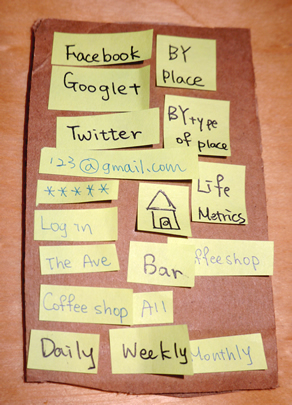 Facebook
BY
Place
Google+
Twitter
BY type
of place
123@gmail.com
*****
Life
Metrics
Log in
The Ave
Bar
ffeeshop
Coffee shop
All
Daily
Weekly
Monthly